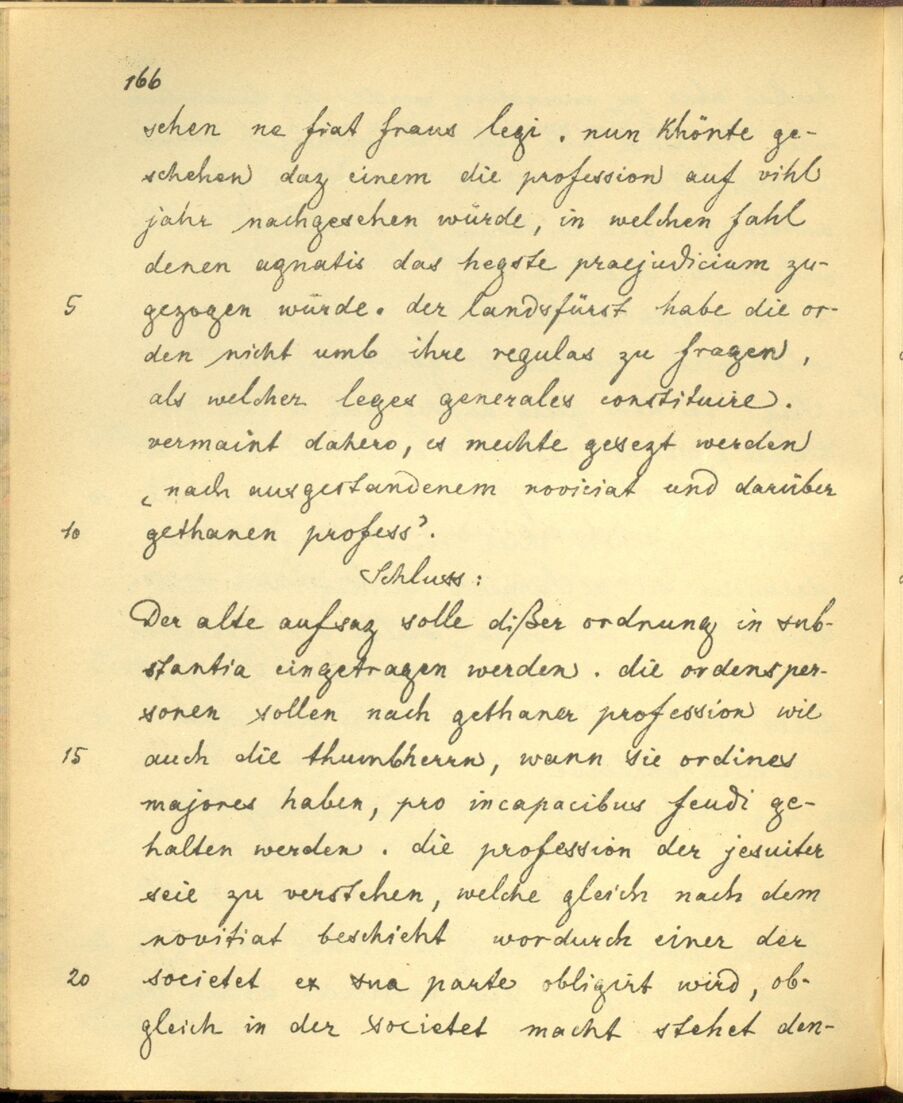 166
sehen ne fiat fraus legi. nun khönte ge-
schehen daz einem die profession auf vihl
jahr nachgesehen würde, in welchen fahl
denen agnatis das hegste praejudicium zu-
5 gezogen würde. der landsfürst habe die or-
den nicht umb ihre regulas zu fragen,
als welcher leges generales constituire.
vermaint dahero, es mechte gesezt werden
‚nach ausgestandenem noviciat und darüber
10 gethanen profess’.
Schluss:
Der alte aufsaz solle dißer ordnung in sub-
stantia eingetragen werden. die ordensper-
sonen sollen nach gethaner profession wie
15 auch die thumbherrn, wann sie ordines
majores haben, pro incapacibus feudi ge-
halten werden. die profession der jesuiter
seie zu verstehen, welche gleich nach dem
novitiat beschicht wordurch einer der
20 societet ex sua parte obligirt wird, ob-
gleich in der societet macht stehet den-